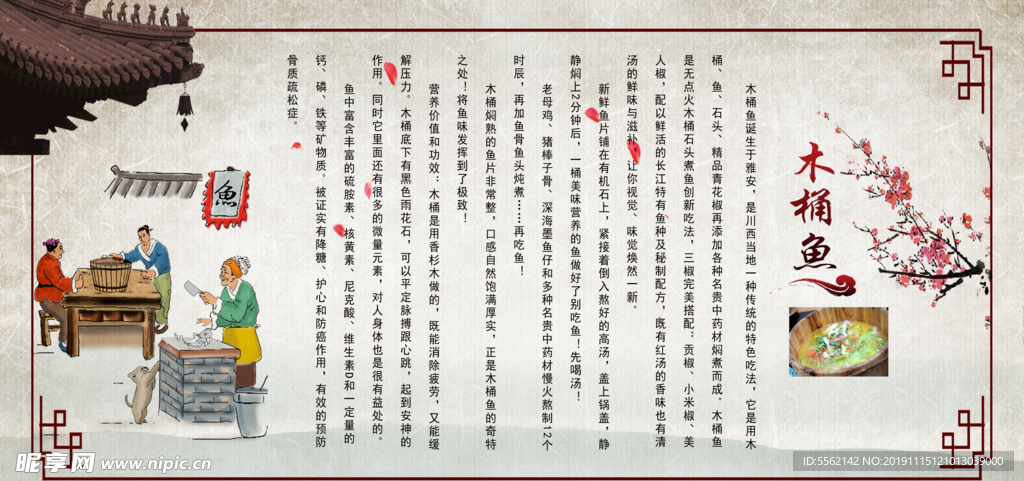 木桶魚
木桶鱼诞生于雅安，是川西当地一种传统的特色吃法，它是用木
桶、鱼、石头、精品青花椒再添加各种名贵中药材焖煮而成。木桶鱼
是无点火木桶石头煮鱼创新吃法，三椒完美搭配：贡椒、小米椒、美
人椒，配以鲜活的长江特有鱼种及秘制配方，既有红汤的香味也有清
汤的鲜味与滋补，让你视觉、味觉焕然一新。
新鲜鱼片铺在有机石上，紧接着倒入熬好的高汤，盖上锅盖，静
静焖上2分钟后，一桶美味营养的鱼做好了别吃鱼！先喝汤！
老母鸡、猪棒子骨、深海墨鱼仔和多种名贵中药材慢火熬制12个
时辰，再加鱼骨鱼头炖煮……再吃鱼！
木桶焖熟的鱼片非常整，口感自然饱满厚实，正是木桶鱼的奇特
之处！将鱼味发挥到了极致！
营养价值和功效：木桶是用香杉木做的，既能消除疲劳，又能缓
解压力。木桶底下有黑色雨花石，可以平定脉搏跟心跳，起到安神的
作用。同时它里面还有很多的微量元素，对人身体也是很有益处的。
鱼中富含丰富的硫胺素、核黄素、尼克酸、维生素D和一定量的
钙、磷、铁等矿物质。被证实有降糖、护心和防癌作用，有效的预防
骨质疏松症。
魚
昵享网 www.nipic.cn
ID:5562142 NO:20191115121013039000